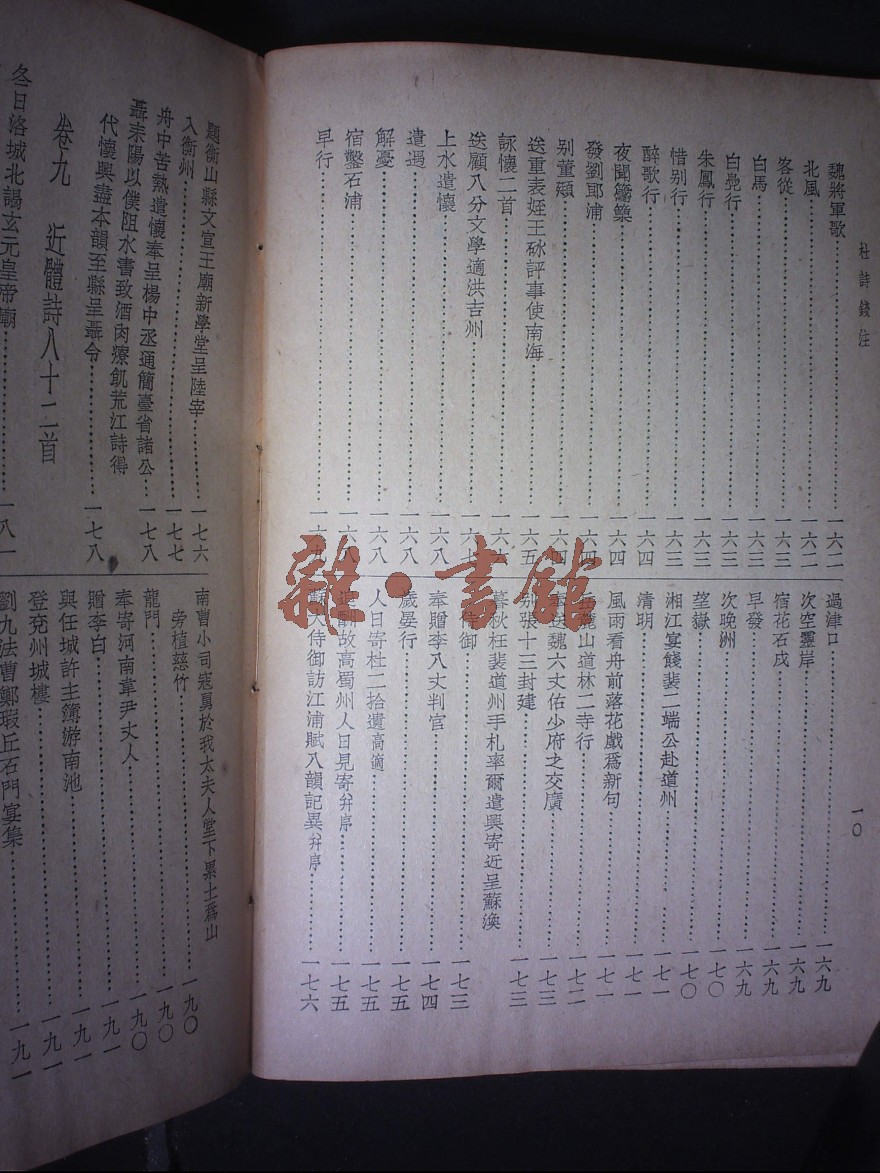 杜詩錢注
一〇
魏將軍歌……一六二
北風……一六二
客從……一六三
白馬……一六三
白鳧行……一六三
朱鳳行……一六三
惜別行……一六三
醉歌行……一六四
夜聞觱篥……一六四
發劉郎浦……一六四
別董頲……一六四
送重表姪王砅評事使南海……一六五
詠懷二首……一六
送顧八分文學適洪吉州……一六七
上水遣懷……一六八
遣遇……一六八
解憂……一六八
宿鑿石浦……一六八
早行……一六九
過津口……一六九
次空靈岸……一六九
宿花石戍……一六九
早發……一六九
次晚洲……一七〇
望嶽……一七〇
湘江宴餞裴二端公赴道州……一七一
清明……一七一
風雨看舟前落花戲爲新句……一七一
麓山道林二寺行……一七二
送魏六丈佑少府之交廣……一七三
別張十三封建……一七三
暮秋枉裴道州手札率爾遣興寄近呈蘇渙
侍御……一七三
奉贈李八丈判官……一七四
歲晏行……一七五
人日寄杜二拾遺高適……一七五
追酬故高蜀州人日見寄幷序……一七五
蘇大侍御訪江浦賦八韻記異幷序……一七六
題衡山縣文宣王廟新學堂呈陸宰……一七六
入衡州……一七七
舟中苦熱遣懷奉呈楊中丞通簡臺省諸公……一七八
聶耒陽以僕阻水書致酒肉療飢荒江詩得
代懷興盡本韻至縣呈聶令……一七八
卷九 近體詩八十二首
冬日洛城北謁玄元皇帝廟……一八一
南曹小司寇舅於我太夫人堂下累土爲山
旁植慈竹……一九〇
龍門……一九〇
奉寄河南韋尹丈人……一九〇
贈李白……一九一
與任城許主簿游南池……一九一
登兗州城樓……一九一
劉九法曹鄭瑕丘石門宴集……一九一
雜·書館